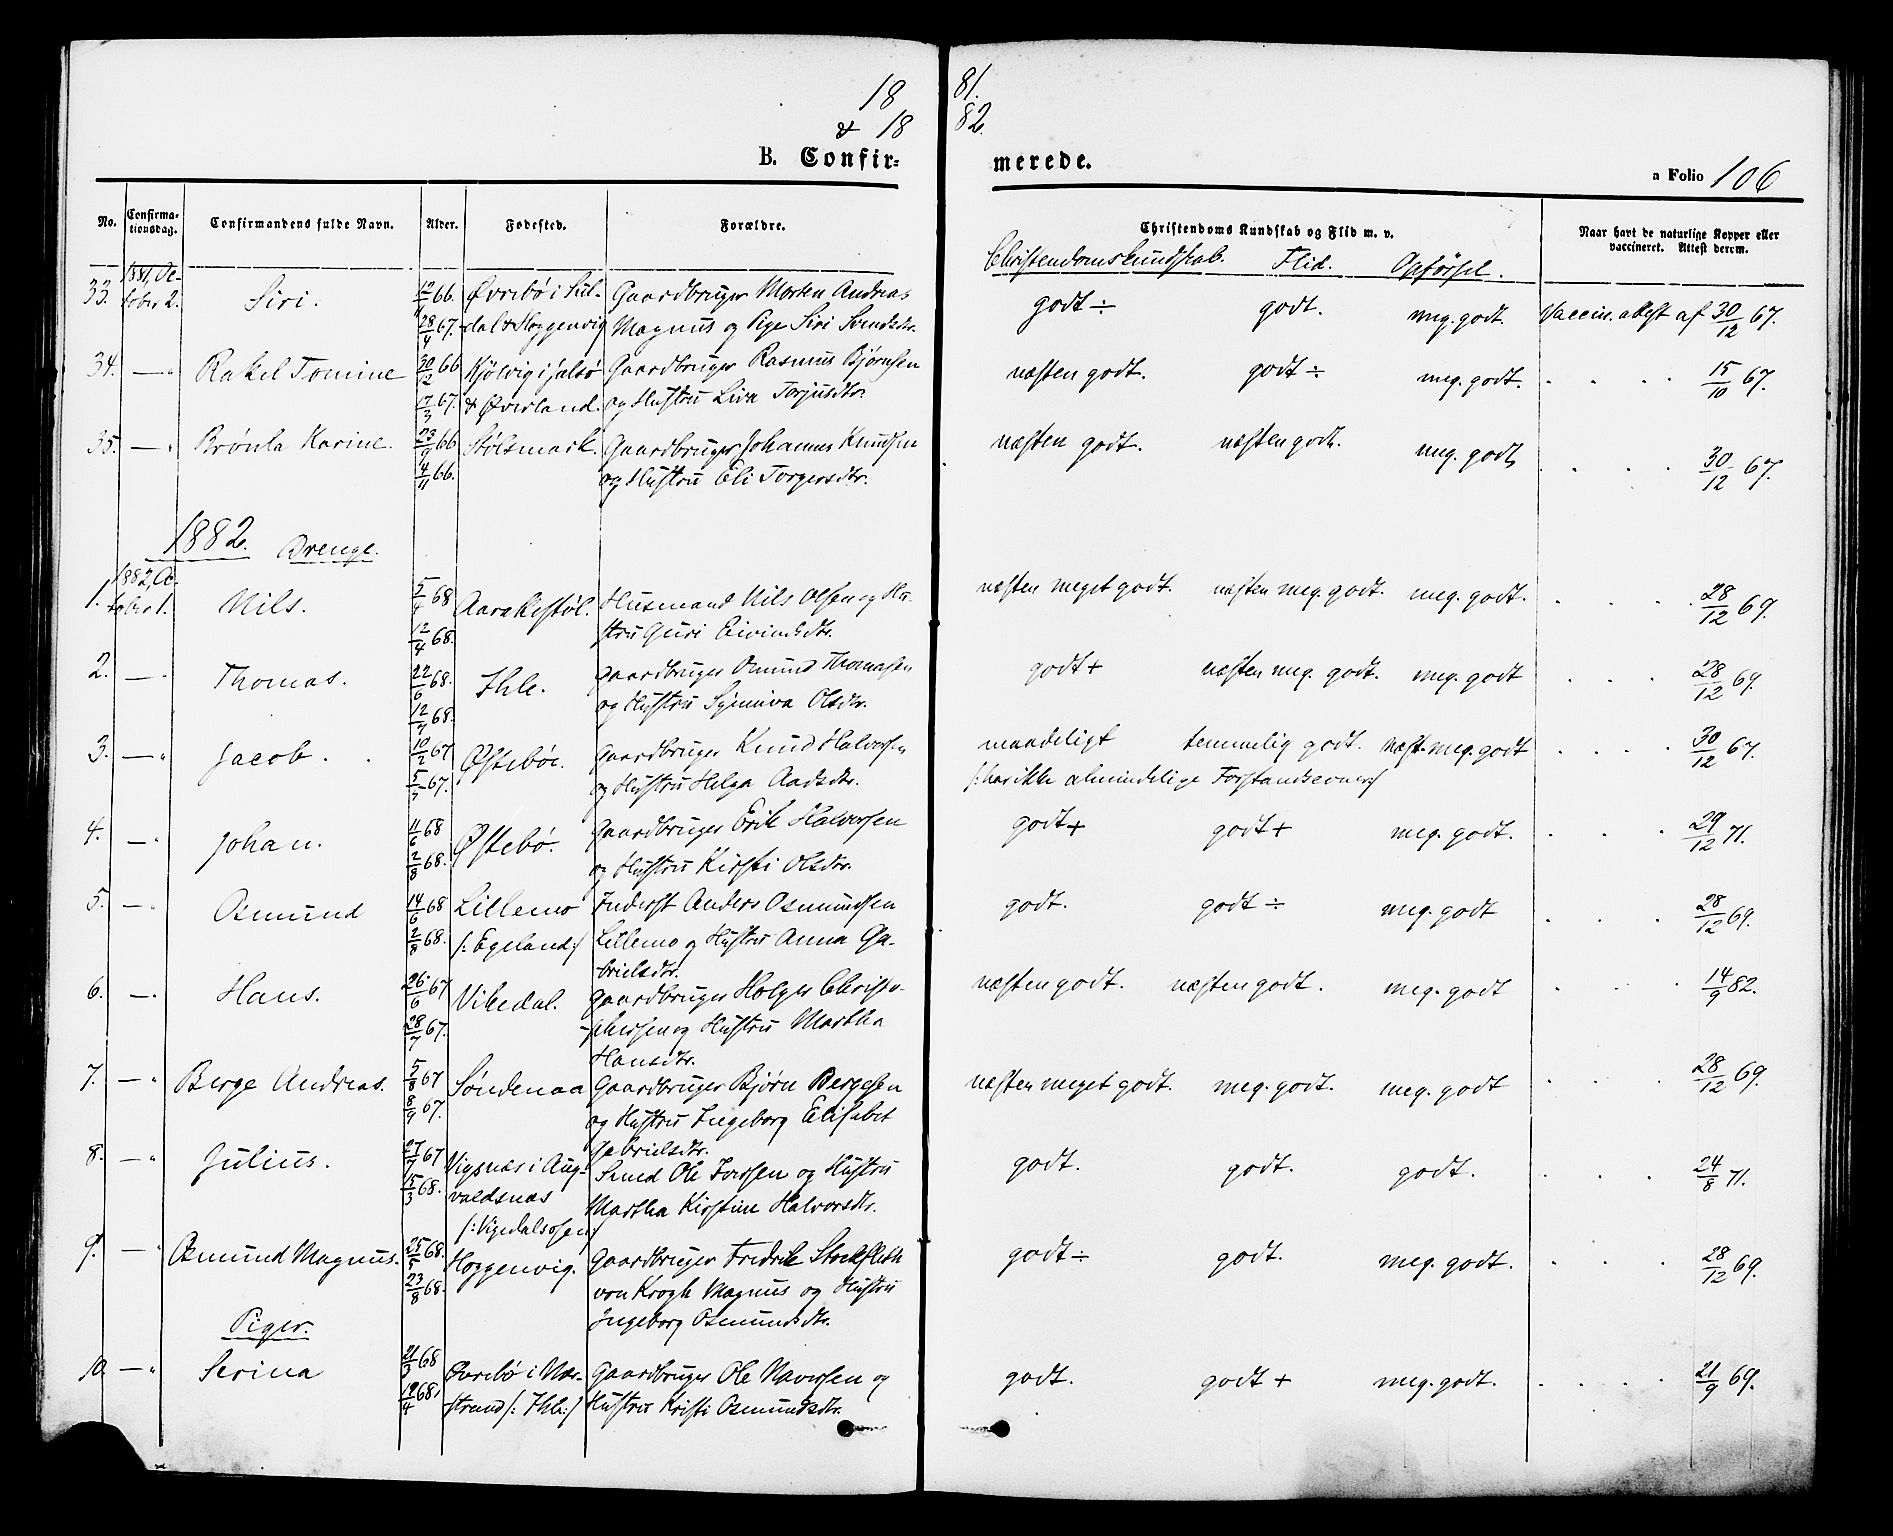 18 81.
& 18 82.
B. Confir= merede.
a Folio 106
No. Confirma-tionsdag. Confirmandens fulde Navn. Alder. Fødested. Forældre. Christendoms Kundskab og Flid m. v. Naar havt de naturlige Kopper eller vaccineret. Attest derom.
Christendomskundskab. Flid. Opførsel.
33. 1881, October 2. Siri. 12/1 66. Øvrebø i Sul- Gaardbruger Morten Andreas godt ÷ godt. meg. godt. Vaccin. attest af 30/12 67.
28/4 67. dal & Hoggenvig Magnus og Pige Siri Svendsdtr.
34. —" Rakel Tomine 30/12 66 Kjølvig i Jelsø Gaardbruger Rasmus Bjørnsen næsten godt. godt ÷ meg. godt. . . . . 15/10 67.
17/3 67. & Øverland. og Hustru Liva Torjusdtr.
35. —" Brønla Karine. 23/9 66 Stølsmark. Gaardbruger Johannes Knudsen næsten godt. næsten godt. meg. godt . . . . 30/12 67.
4/11 66. og Hustru Eli Torgersdtr.
1882. Drenge.
1. 1882, October 1. Nils. 5/4 68 Aarakestøl. Husmand Nils Olsen og Hu- næsten meget godt. næsten meg. godt. meg. godt. . . . . 28/12 69.
12/4 68. stru Guri Eivindsdtr.
2. —" Thomas. 22/6 68. Ihle. Gaardbruger Osmund Thomasen godt + næsten meg. godt. meg. godt . . . 28/12 69.
12/7 68. og Hustru Synniva Olsdtr.
3. —" Jacob. 10/2 67 Østebøe. Gaardbruger Knud Halvorsen maadeligt temmelig godt. næst. meg. godt . . . . 30/12 67.
5/5 67. og Hustru Helga Aadsdtr. /: har ikke almindelige Forstandsevner :/
4. —" Johan. 11/6 68 Østebø. Gaardbruger Erik Halvorsen godt + godt + meg. godt. . . . 29/12 71.
2/8 68. og Hustru Kirsti Olsdtr.
5. —" Osmund 14/6 68 Lillemo Inderst Anders Osmundsen godt. godt ÷ meg. godt . . . 28/12 69.
2/8 68. /: Egeland :/ Lillemo og Hustru Anna Ga-
brielsdtr.
6. —" Hans. 26/6 67 Vikedal. Gaardbruger Holger Christo- næsten godt. næsten godt. meg. godt . . . 14/9 82.
28/7 67. phersen og Hustru Martha
Hansdtr.
7. —" Berge Andreas. 5/8 67 Søndenaa Gaardbruger Bjørn Bergesen næsten meget godt. meg. godt. meg. godt . . . 28/12 69.
8/9 67. og Hustru Ingeborg Elisabet
Gabrielsdtr.
8. —" Julius. 27/7 67 Vigsnæs i Aug- Smed Ole Torsen og Hustru godt. godt. godt. . . . 24/8 71.
15/3 68. valdsnæs Martha Kirstine Halvorsdtr.
/: Vigedalsosen :/
9. —" Osmund Magnus. 25/5 68. Hoggenvig. Gaardbruger Fredrik Stockfleth godt ÷ godt. meg. godt. . . . 28/12 69.
23/8 68. von Krogh Magnus og Hustru
Ingeborg Osmundsdtr.
Piger.
10. —" Serina 21/3 68 Øvrebø i Nær- Gaardbruger Ole Naversen og godt. godt + meg. godt. . . . . 21/9 69.
12/4 68, strand /: Ihle :/ Hustru Kristi Osmundsdtr.